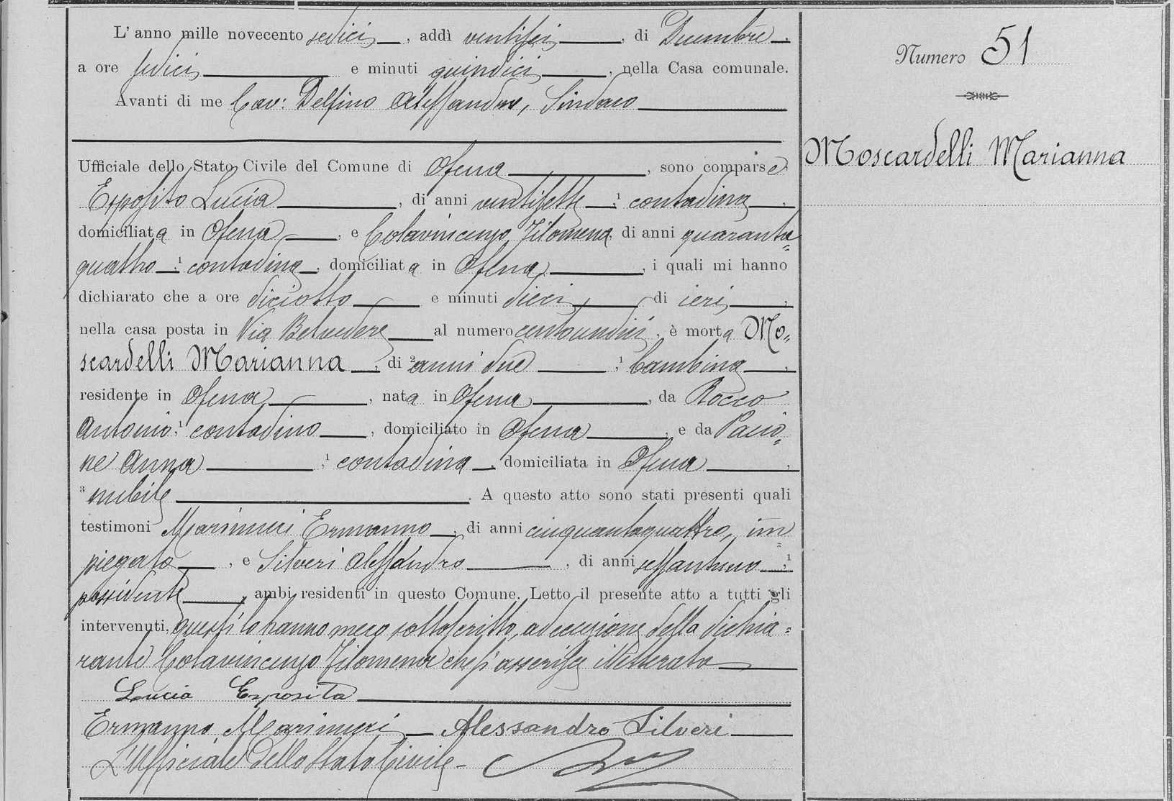 L'anno mille novecento sedici, addì ventisei, di Dicembre
a ore sedici e minuti quindici, nella Casa comunale.
Avanti di me Cav: Delfino Alessandro, Sindaco
Ufficiale dello Stato Civile del Comune di Ofena, sono comparse
Esposito Lucia, di anni ventisette, contadina,
domiciliata in Ofena, e Colavincenzo Filomena di anni quaranta=
quattro, contadina, domiciliata in Ofena, i quali mi hanno
dichiarato che a ore diciotto e minuti dieci di ieri,
nella casa posta in Via Belvedere al numero centoundici, è morta Mo=
scardelli Marianna, di anni due, bambina,
residente in Ofena, nata in Ofena, da Rocco
Antonio, contadino, domiciliato in Ofena e da Pacio=
ne Anna, contadina, domiciliata in Ofena
nubile. A questo atto sono stati presenti quali
testimoni Ermanno, di anni cinquantaquattro, im
piegato, e Silveri Alessandro, di anni sessantuno,
possidente, ambi residenti in questo Comune. Letto il presente atto a tutti gli
intervenuti, questi lo hanno meco sottoscritto, ad eccezione della dichia=
rante Colavincenzo Filomena che s'asserisce illetterata
Lucia Esposita
Ermanno Alessandro Silveri
L'Ufficiale dello Stato Civile
Numero 51
Moscardelli Marianna